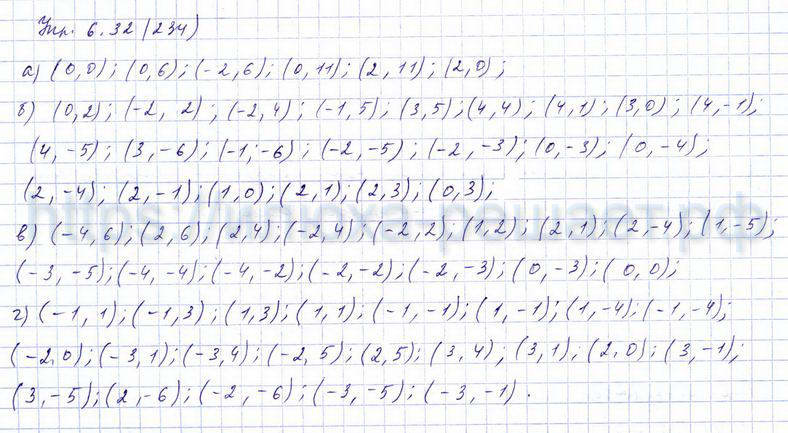 Упр. 6.32 (234)
а) (0,0); (0,6); (-2,6); (0,11); (2,11); (2,0);
б) (0,2); (-2, 2); (-2,4); (-1,5); (3,5); (4,4); (4,1); (3,0); (4,-1);
(4,-5); (3,-6); (-1;-6); (-2,-5); (-2,-3); (0,-3); (0,-4);
(2,-4); (2,-1); (1,0); (2,1); (2,3); (0,3);
в) (-4,6); (2,6); (2,4); (-2,4); (-2,2); (1,2); (2,1); (2,-4); (1,-5);
(-3,-5); (-4,-4); (-4,-2); (-2,-2); (-2,-3); (0,-3); (0,0);
г) (-1,1); (-1,3); (1,3); (1,1); (-1,-1); (1,-1); (1,-4); (-1,-4);
(-2,0); (-3,1); (-3,4); (-2,5); (2,5); (3,4); (3,1); (2,0); (3,-1);
(3,-5); (2,-6); (-2,-6); (-3,-5); (-3,-1).